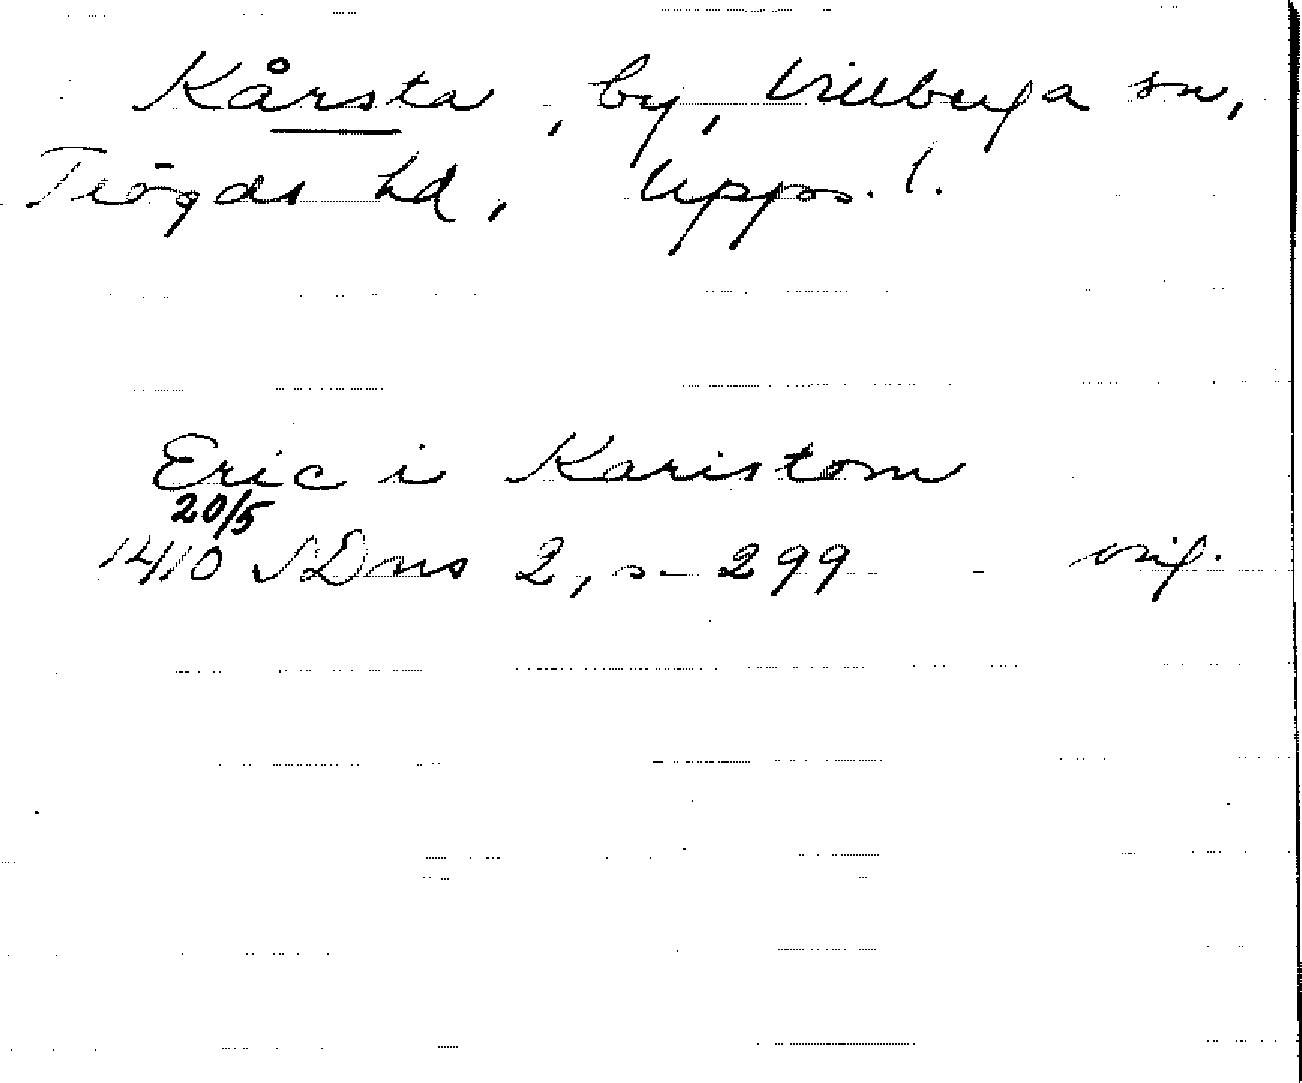 Kårsta, by, Villberga sn,
Trögds hd, Upps. l.
Eric i Karistom
20/5
1410 SDns 2, s. 299 orig.